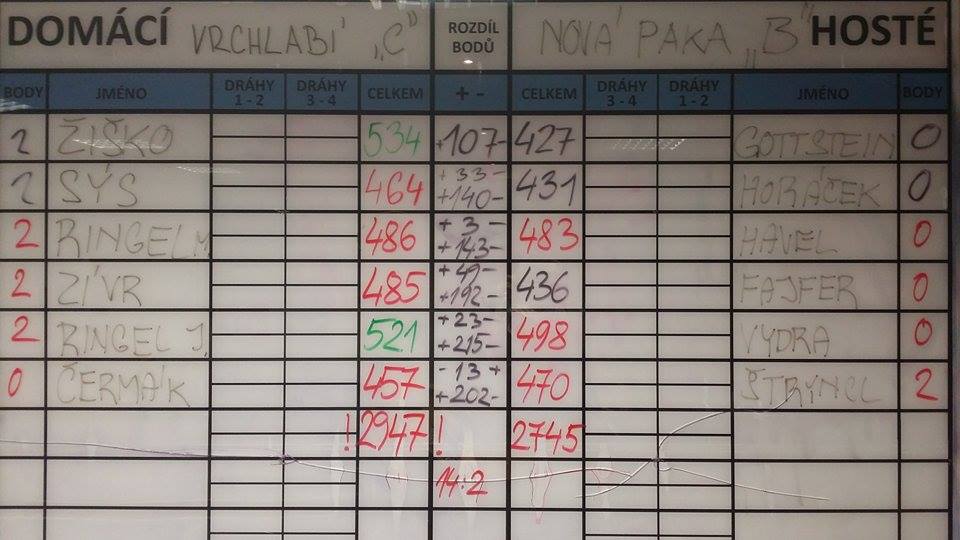 DOMÁCÍ VRCHLABÍ „C" ROZDÍL BODŮ NOVÁ PAKA „B" HOSTÉ
BODY JMÉNO DRÁHY 1 - 2 DRÁHY 3 - 4 CELKEM + - CELKEM DRÁHY 3 - 4 DRÁHY 1 - 2 JMÉNO BODY
2 ŽIŠKO 534 +107- 427 GOTTSTEIN 0
2 SÝS 464 +33- +140- 431 HORÁČEK 0
2 RINGEL M 486 +3- +143- 483 HAVEL 0
2 ZÍVR 485 +49- +192- 436 FAJFER 0
2 RINGEL J. 521 +23- +215- 498 VYDRA 0
0 ČERMÁK 457 -13+ +202- 470 ŠTRÝNCL 2
!2947! 2745
14:2